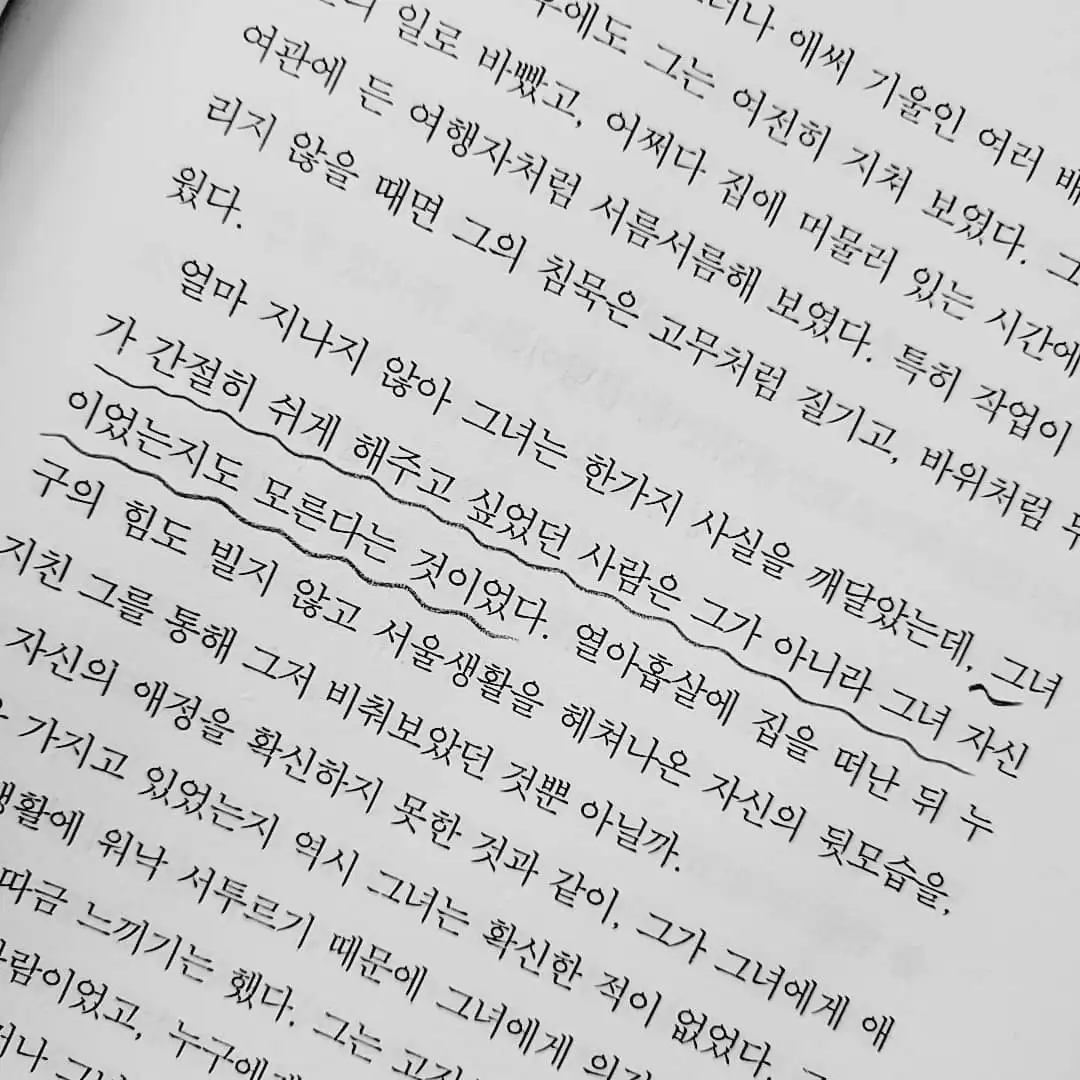 애써 기울인 여러
그는 여전히 지쳐 보였다. 그
일로 바빴고, 어쩌다 집에 머물러 있는 시간에
여관에 든 여행자처럼 서름서름해 보였다. 특히 작업이
리지 않을 때면 그의 침묵은 고무처럼 질기고, 바위처럼
웠다.
얼마 지나지 않아 그녀는 한가지 사실을 깨달았는데, 그녀
가 간절히 쉬게 해주고 싶었던 사람은 그가 아니라 그녀 자신
이었는지도 모른다는 것이었다. 열아홉살에 집을 떠난 뒤 누
구의 힘도 빌지 않고 서울생활을 헤쳐나온 자신의 뒷모습을,
지친 그를 통해 그저 비춰보았던 것뿐 아닐까.
자신의 애정을 확신하지 못한 것과 같이, 그가 그녀에게 애
가지고 있었는지 역시 그녀는 확신한 적이 없었다.
생활에 위낙 서투르기 때문에 그녀에게
따금 느끼기는 했다. 그는
사람이었고,